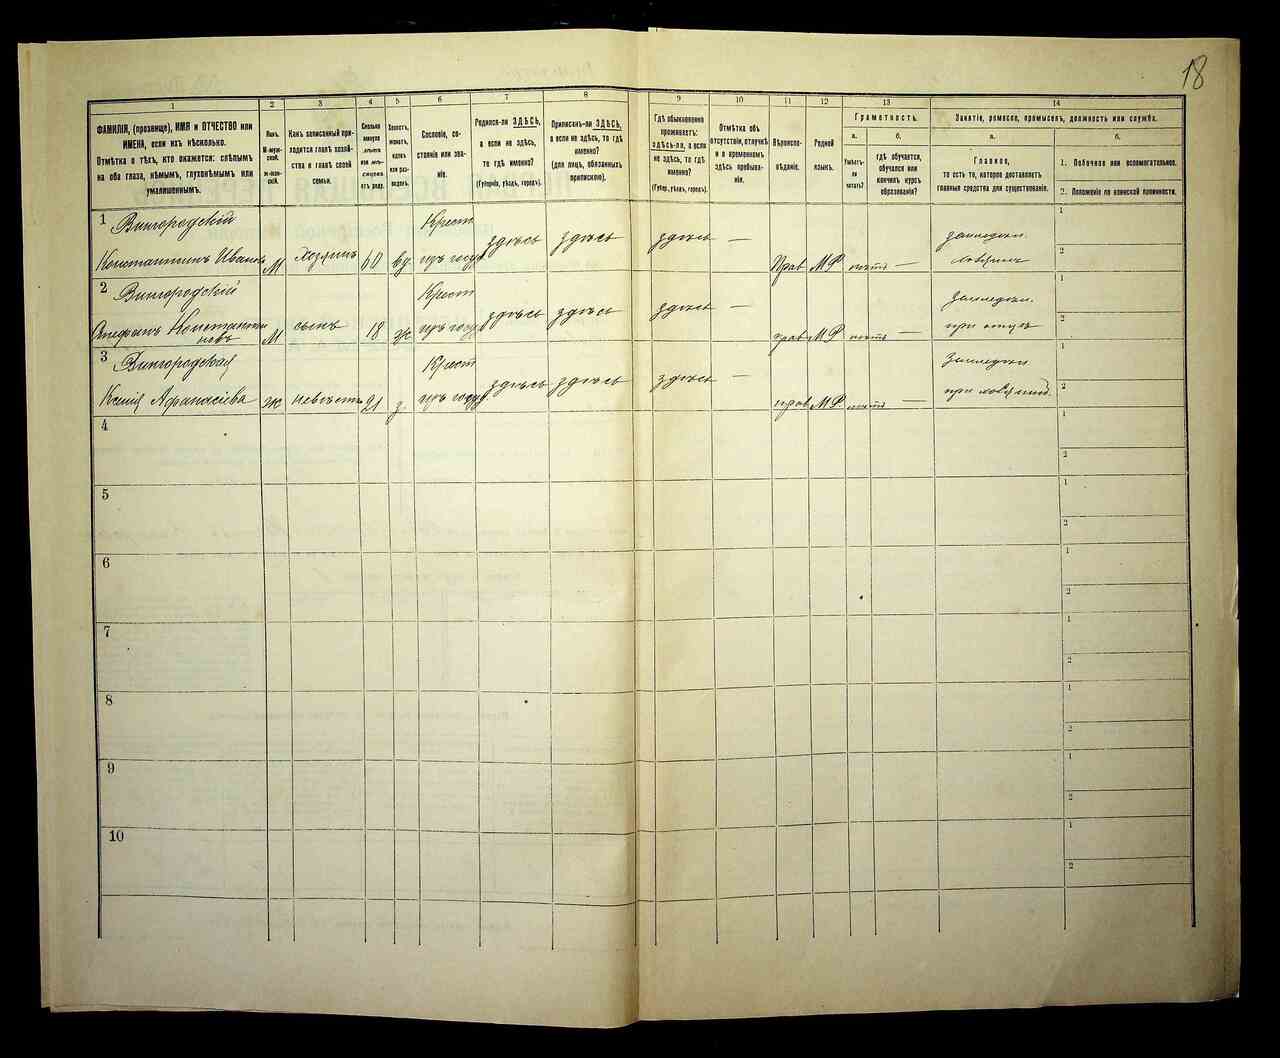 18
1 2 3 4 5 6 7 8 9 10 11 12 13 14
ФАМИЛІЯ, (прозвище), ИМЯ и ОТЧЕСТВО или
ИМЕНА, если ихъ нѣсколько.
Отмѣтка о тѣхъ, кто окажется: слѣпымъ
на оба глаза, нѣмымъ, глухонѣмымъ или
умалишеннымъ.
Полъ.
М-мужской.
Ж-женскій.
Какъ записанный приходится главѣ хозяйства и главѣ своей семьи.
Сколько минуло лѣтъ или мѣсяцевъ отъ роду.
Холостъ, женатъ, вдовъ или разведенъ.
Сословіе, состояніе или званіе.
Родился-ли ЗДѢСЬ,
а если не здѣсь,
то гдѣ именно?
(Губернія, уѣздъ, городъ).
Приписанъ-ли ЗДѢСЬ,
а если не здѣсь, то гдѣ
именно?
(для лицъ, обязанныхъ
припискою).
Гдѣ обыкновенно
проживаетъ:
здѣсь-ли, а если
не здѣсь, то гдѣ
именно?
(Губер., уѣздъ, городъ).
Отмѣтка объ
отсутствіи, отлучкѣ
и о временномъ
здѣсь пребываніи.
Вѣроисповѣданіе.
Родной
языкъ.
Грамотность.
а.
Умѣетъ-ли
читать?
б.
гдѣ обучается,
обучался или
кончилъ курсъ
образованія?
Занятіе, ремесло, промыселъ, должность или служба.
а.
Главное,
то есть то, которое доставляетъ
главныя средства для существованія.
б.
1. Побочное или вспомогательное.
2. Положеніе по воинской повинности.
1 Вингородскій
Константинъ Ивановъ М хозяинъ 60 вд Крест изъ госуд здѣсь здѣсь здѣсь — Прав М Р —
1
2
2 Вингородскій
Стефанъ Константиновъ М сынъ 18 Крест изъ госуд здѣсь здѣсь здѣсь — прав М Р — земледѣл. при отцѣ
1
2
3 Вингородская
Ксенія Афанасіева ж невѣстка 21 з Крест изъ госуд здѣсь здѣсь здѣсь — прав М Р —
1
2
4
1
2
5
1
2
6
1
2
7
1
2
8
1
2
9
1
2
10
1
2